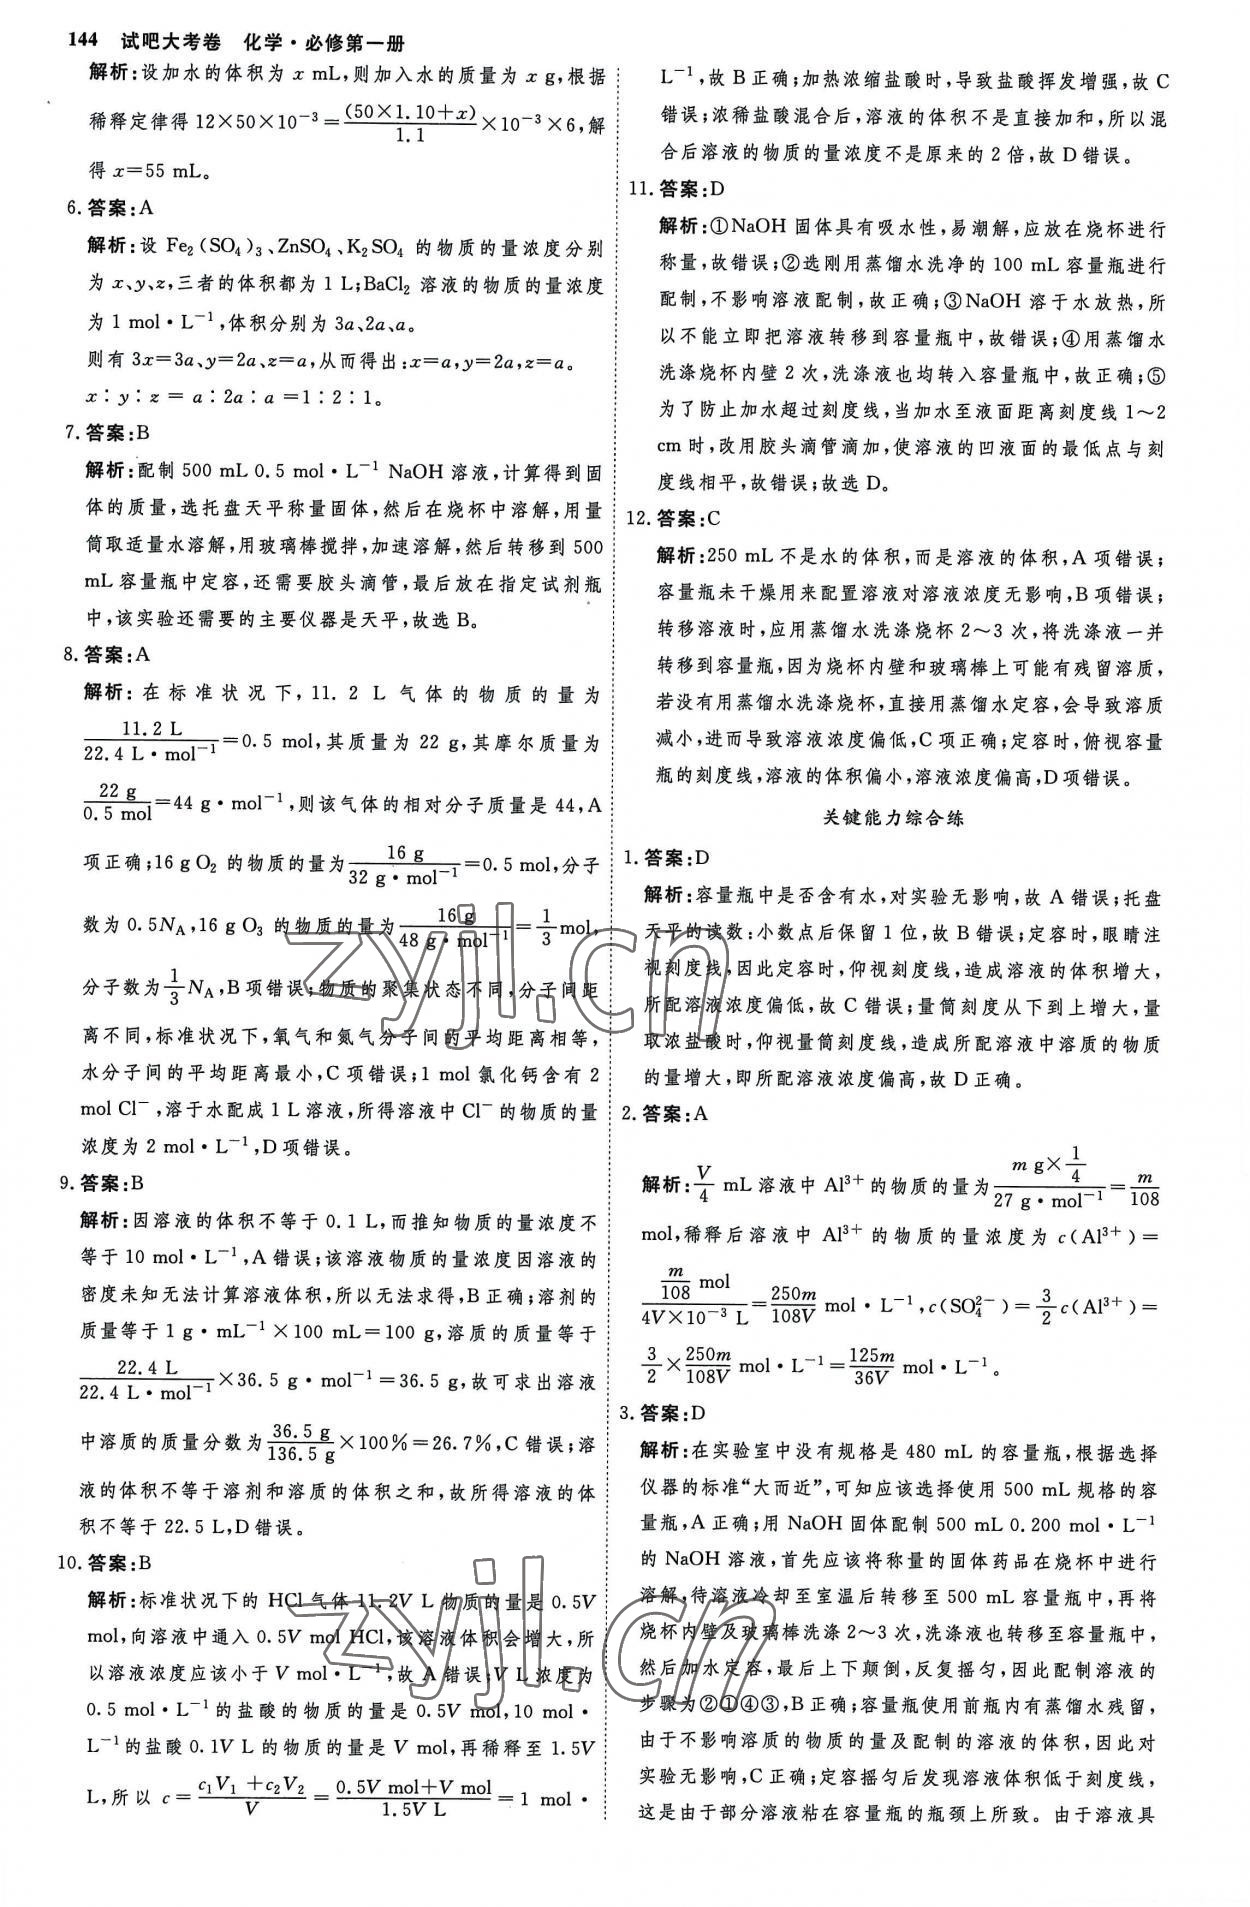 144 试吧大考卷 化学·必修第一册
解析:设加水的体积为 x mL,则加入水的质量为 x g,根据
稀释定律得 12×50×10⁻³=(50×1.10+x)/1.1×10⁻³×6,解
得 x=55 mL。
6. 答案:A
解析:设 Fe₂(SO₄)₃、ZnSO₄、K₂SO₄ 的物质的量浓度分别
为 x、y、z,三者的体积都为 1 L;BaCl₂ 溶液的物质的量浓度
为 1 mol·L⁻¹,体积分别为 3a、2a、a。
则有 3x=3a、y=2a、z=a,从而得出:x=a,y=2a,z=a。
x∶y∶z = a∶2a∶a =1∶2∶1。
7. 答案:B
解析:配制 500 mL 0.5 mol·L⁻¹ NaOH 溶液,计算得到固
体的质量,选托盘天平称量固体,然后在烧杯中溶解,用量
筒取适量水溶解,用玻璃棒搅拌,加速溶解,然后转移到 500
mL 容量瓶中定容,还需要胶头滴管,最后放在指定试剂瓶
中,该实验还需要的主要仪器是天平,故选 B。
8. 答案:A
解析:在标准状况下,11.2 L 气体的物质的量为
11.2 L/22.4 L·mol⁻¹=0.5 mol,其质量为 22 g,其摩尔质量为
22 g/0.5 mol=44 g·mol⁻¹,则该气体的相对分子质量是 44,A
项正确;16 g O₂ 的物质的量为16 g/32 g·mol⁻¹=0.5 mol,分子
数为 0.5N_A,16 g O₃ 的物质的量为16 g/48 g·mol⁻¹=1/3 mol,
分子数为1/3 N_A,B 项错误;物质的聚集状态不同,分子间距
离不同,标准状况下,氧气和氮气分子间的平均距离相等,
水分子间的平均距离最小,C 项错误;1 mol 氯化钙含有 2
mol Cl⁻,溶于水配成 1 L 溶液,所得溶液中 Cl⁻ 的物质的量
浓度为 2 mol·L⁻¹,D 项错误。
9. 答案:B
解析:因溶液的体积不等于 0.1 L,而推知物质的量浓度不
等于 10 mol·L⁻¹,A 错误;该溶液物质的量浓度因溶液的
密度未知无法计算溶液体积,所以无法求得,B 正确;溶剂的
质量等于 1 g·mL⁻¹×100 mL=100 g,溶质的质量等于
22.4 L/22.4 L·mol⁻¹×36.5 g·mol⁻¹=36.5 g,故可求出溶液
中溶质的质量分数为36.5 g/136.5 g×100%=26.7%,C 错误;溶
液的体积不等于溶剂和溶质的体积之和,故所得溶液的体
积不等于 22.5 L,D 错误。
10. 答案:B
解析:标准状况下的 HCl 气体 11.2V L 物质的量是 0.5V
mol,向溶液中通入 0.5V mol HCl,该溶液体积会增大,所
以溶液浓度应该小于 V mol·L⁻¹,故 A 错误;V L 浓度为
0.5 mol·L⁻¹ 的盐酸的物质的量是 0.5V mol,10 mol·
L⁻¹的盐酸 0.1V L 的物质的量是 V mol,再稀释至 1.5V
L,所以 c=(c₁V₁+c₂V₂)/V=(0.5V mol+V mol)/1.5V L=1 mol·
L⁻¹,故 B 正确;加热浓缩盐酸时,导致盐酸挥发增强,故 C
错误;浓稀盐酸混合后,溶液的体积不是直接加和,所以混
合后溶液的物质的量浓度不是原来的 2 倍,故 D 错误。
11. 答案:D
解析:①NaOH 固体具有吸水性,易潮解,应放在烧杯进行
称量,故错误;②选刚用蒸馏水洗净的 100 mL 容量瓶进行
配制,不影响溶液配制,故正确;③NaOH 溶于水放热,所
以不能立即把溶液转移到容量瓶中,故错误;④用蒸馏水
洗涤烧杯内壁 2 次,洗涤液也均转入容量瓶中,故正确;⑤
为了防止加水超过刻度线,当加水至液面距离刻度线 1～2
cm 时,改用胶头滴管滴加,使溶液的凹液面的最低点与刻
度线相平,故错误;故选 D。
12. 答案:C
解析:250 mL 不是水的体积,而是溶液的体积,A 项错误;
容量瓶未干燥用来配置溶液对溶液浓度无影响,B 项错误;
转移溶液时,应用蒸馏水洗涤烧杯 2～3 次,将洗涤液一并
转移到容量瓶,因为烧杯内壁和玻璃棒上可能有残留溶质,
若没有用蒸馏水洗涤烧杯,直接用蒸馏水定容,会导致溶质
减小,进而导致溶液浓度偏低,C 项正确;定容时,俯视容量
瓶的刻度线,溶液的体积偏小,溶液浓度偏高,D 项错误。
关键能力综合练
1. 答案:D
解析:容量瓶中是否含有水,对实验无影响,故 A 错误;托盘
天平的读数:小数点后保留 1 位,故 B 错误;定容时,眼睛注
视刻度线,因此定容时,仰视刻度线,造成溶液的体积增大,
所配溶液浓度偏低,故 C 错误;量筒刻度从下到上增大,量
取浓盐酸时,仰视量筒刻度线,造成所配溶液中溶质的物质
的量增大,即所配溶液浓度偏高,故 D 正确。
2. 答案:A
解析:V/4 mL 溶液中 Al³⁺ 的物质的量为(m g×1/4)/27 g·mol⁻¹=m/108
mol,稀释后溶液中 Al³⁺ 的物质的量浓度为 c(Al³⁺)=
(m/108 mol)/4V×10⁻³ L=250m/108V mol·L⁻¹,c(SO₄²⁻)=3/2 c(Al³⁺)=
3/2×250m/108V mol·L⁻¹=125m/36V mol·L⁻¹。
3. 答案:D
解析:在实验室中没有规格是 480 mL 的容量瓶,根据选择
仪器的标准“大而近”,可知应该选择使用 500 mL 规格的容
量瓶,A 正确;用 NaOH 固体配制 500 mL 0.200 mol·L⁻¹
的 NaOH 溶液,首先应该将称量的固体药品在烧杯中进行
溶解,待溶液冷却至室温后转移至 500 mL 容量瓶中,再将
烧杯内壁及玻璃棒洗涤 2～3 次,洗涤液也转移至容量瓶中,
然后加水定容,最后上下颠倒,反复摇匀,因此配制溶液的
步骤为②①④③,B 正确;容量瓶使用前瓶内有蒸馏水残留,
由于不影响溶质的物质的量及配制的溶液的体积,因此对
实验无影响,C 正确;定容摇匀后发现溶液体积低于刻度线,
这是由于部分溶液粘在容量瓶的瓶颈上所致。由于溶液具
zyjl.cn
zyjl.cn